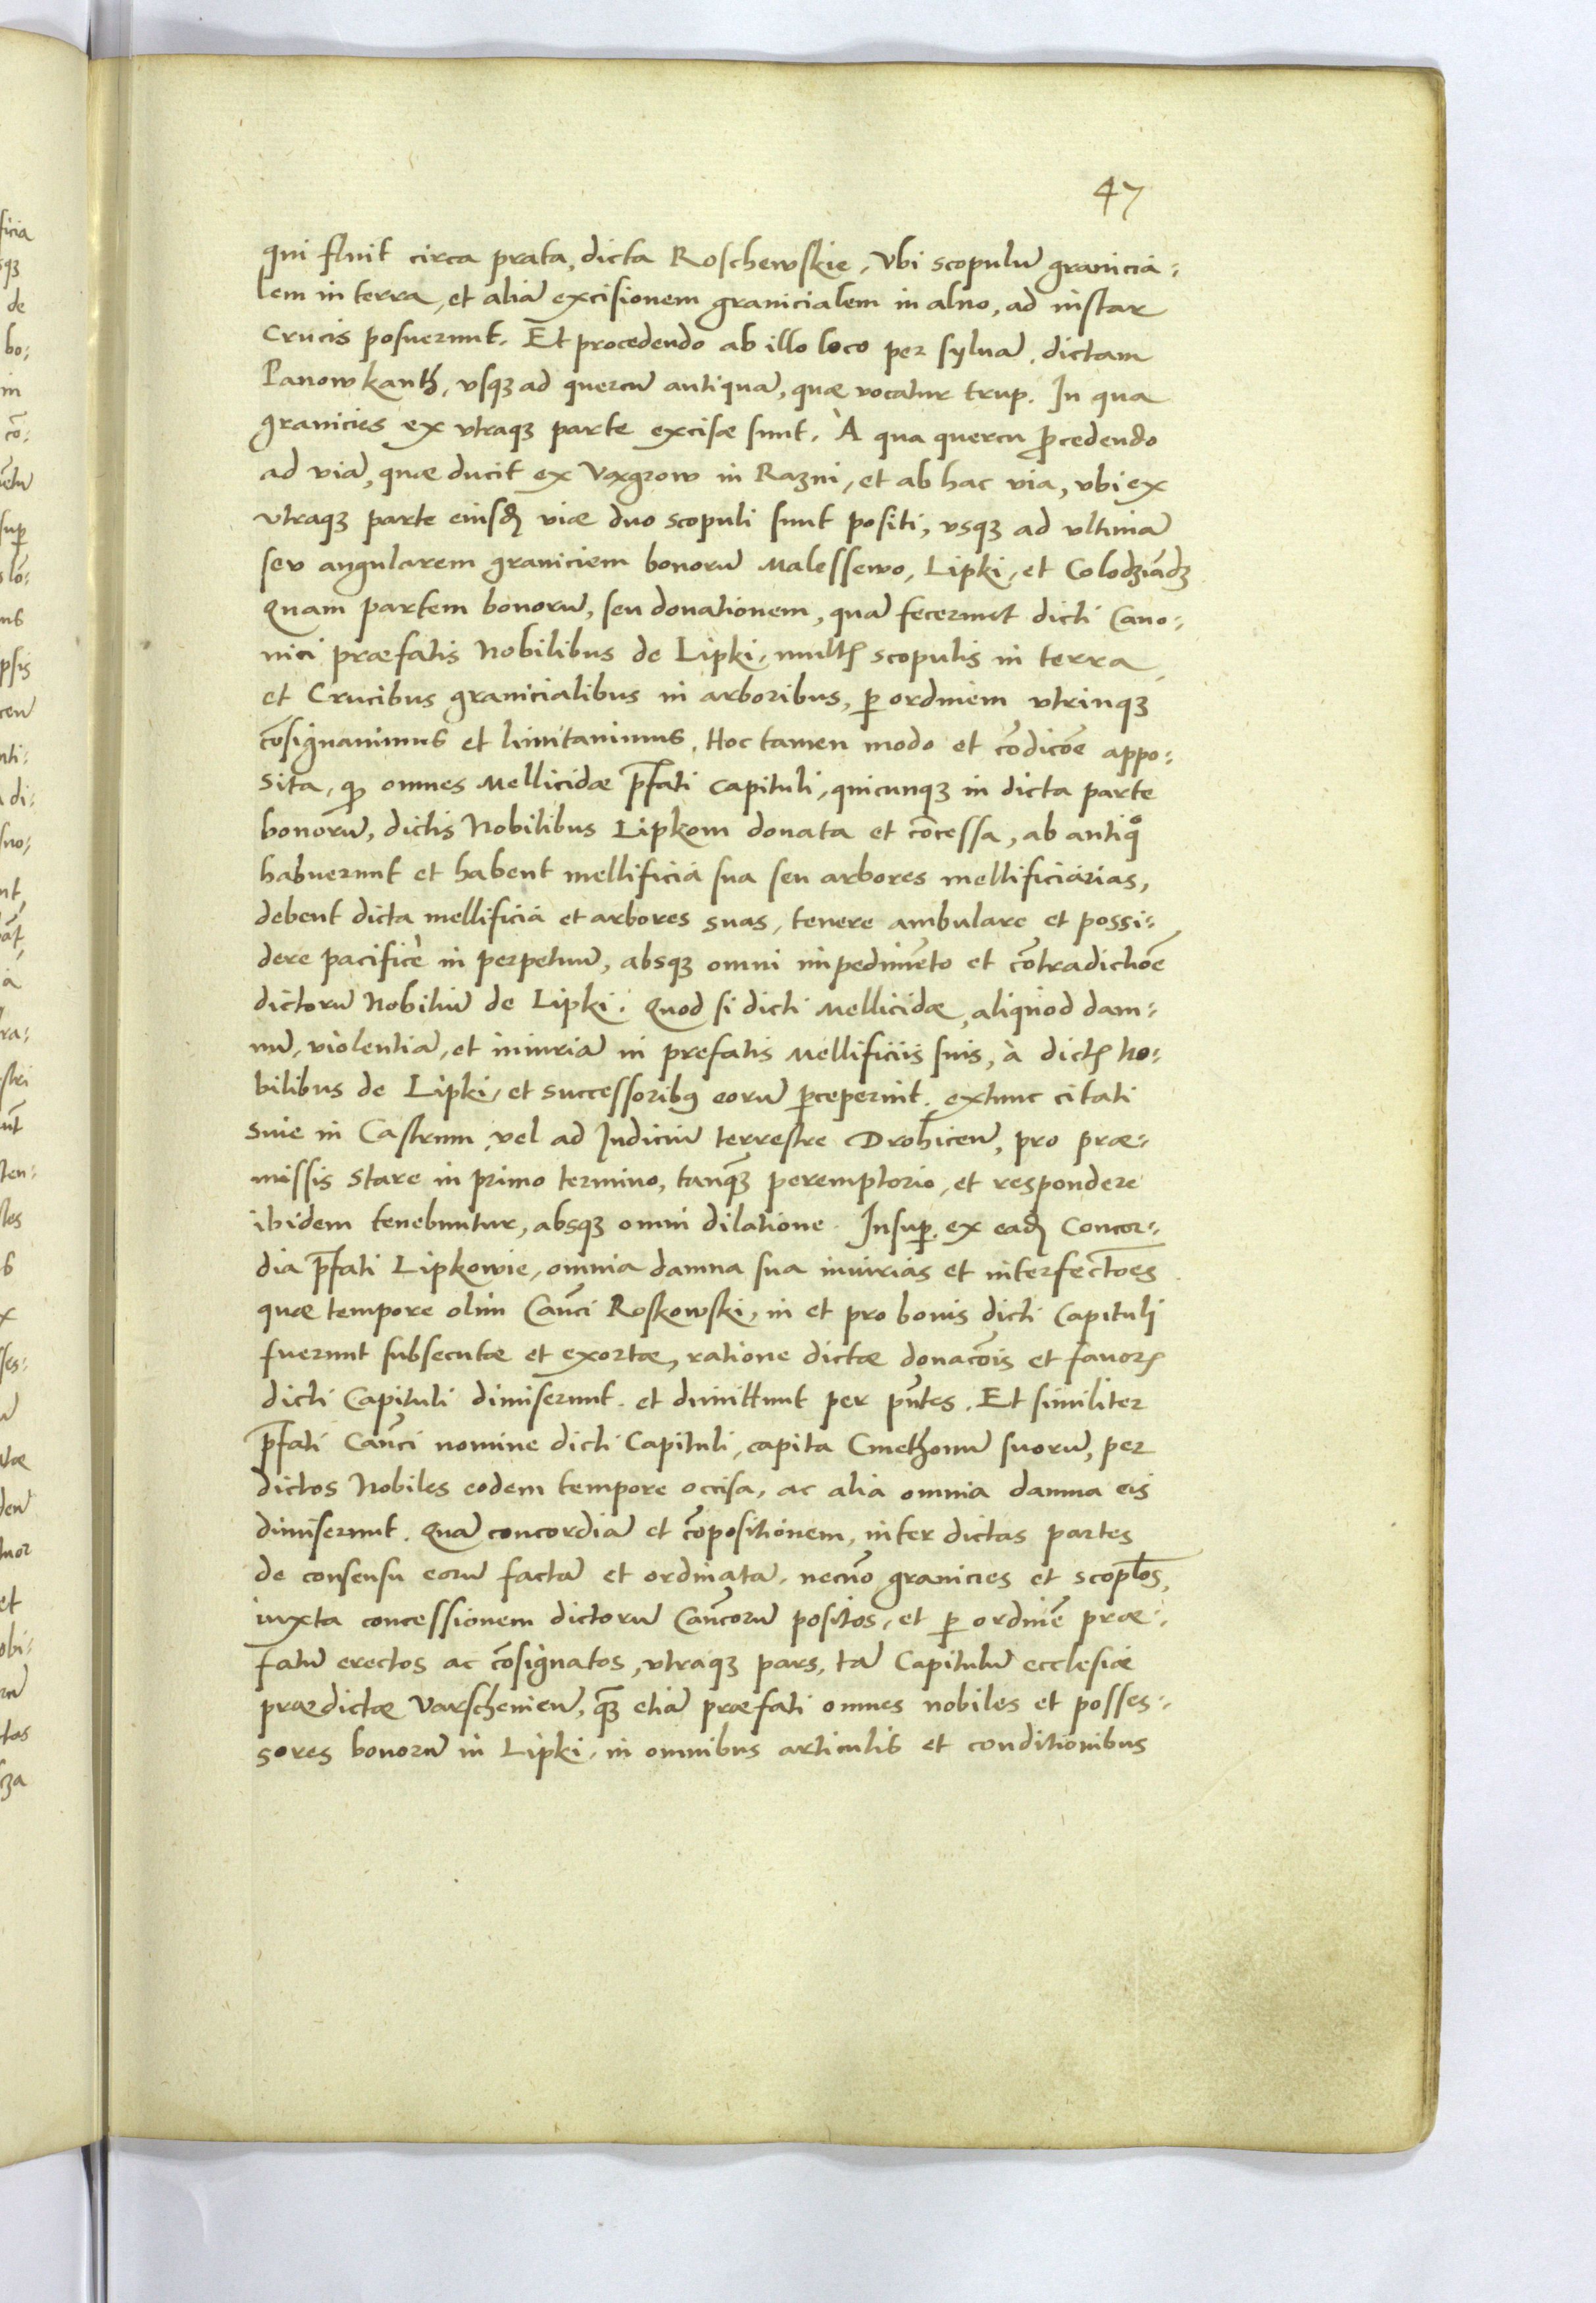 47
qui fluit circa prata, dicta Roschewskie, Vbi scopulū granicia:
lem in terra, et aliā excisionem granicialem in alno, ad instar
Crucis posuerunt. Et procedendo ab illo loco per syluā, dictam
Panowkanth, vsqꝫ ad quercū antiquā, quæ vocatur trup. In qua
granicies ex vtraqꝫ parte excisæ sunt. A qua quercu p̄cedendo
ad viā, quæ ducit ex Vagrow in Razni, et ab hac via, vbi ex
vtraqꝫ parte eiusdē viæ duo scopuli sunt positi, vsqꝫ ad vltimā
seu angularem graniciem bonorū Malessewo, Lipki, et Colodziādz
Quam partem bonorū, seu donationem, quā fecerunt dicti Cano:
nici præfatis Nobilibus de Lipki, multꝭ scopulis in terra,
et Crucibus granicialibus in arboribus, ꝑ ordinem vtrinqꝫ
cōsignauimus et limitauimus, Hoc tamen modo et cōdicōe appo:
sita, ꝙ omnes Mellicidæ p̄fati Capituli, quicunqꝫ in dicta parte
bonorū, dictis Nobilibus Lipkom donata et cōcessa, ab antiqͦ
habuerunt et habent mellificia sua seu arbores mellificiarias,
debent dicta mellificia et arbores suas, tenere ambulare et possi:
dere pacificè in perpetuū, absqꝫ omni impedimēto et cōtradictiōe
dictorū Nobiliū de Lipki. Quod si dicti Mellicidæ, aliquod dam:
nū, violentiā, et iniuriā in prefatis Mellificiis suis, à dictꝭ No:
bilibus de Lipki, et successoribꝰ eorū ꝑceperint. extunc citati
siue in Castrum, vel ad Iudiciū terrestre Drohiceū, pro præ:
missis stare in primo termino, tanqꝫ̄ peremptorio, et respondere
ibidem tenebuntur, absqꝫ omni dilatione. Insuꝑ ex eadē Concor:
dia p̄fati Lipkowie, omnia damna sua iniurias et interfectōes
quæ tempore olim Cauci Roskowski, in et pro bonis dicti Capituli
fuerunt subsecutæ et exortæ, ratione dictæ donacōis et fauorꝭ
dicti Capituli dimiserunt. et dimittunt per pn̄tes. Et similiter
p̄fati Canci nomine dicti Capituli, capita Cmethonū suorū, per
dictos Nobiles eodem tempore occisa, ac alia omnia damna eis
dimiserunt. Quā concordiā et cōpositionem, inter dictas partes
de consensu eorū factā et ordinatā, necnō granicies et scoptos,
iuxta concessionem dictorū Cancorū positos, et ꝑ ordinē præ:
fatū erectos ac cōsignatos, vtraqꝫ pars, tā Capitulū ecclesiæ
prædictæ Varscheuieū, qꝫ̄ etiā præfati omnes nobiles et posses:
sores bonorū in Lipki, in omnibus articulis et conditionibus